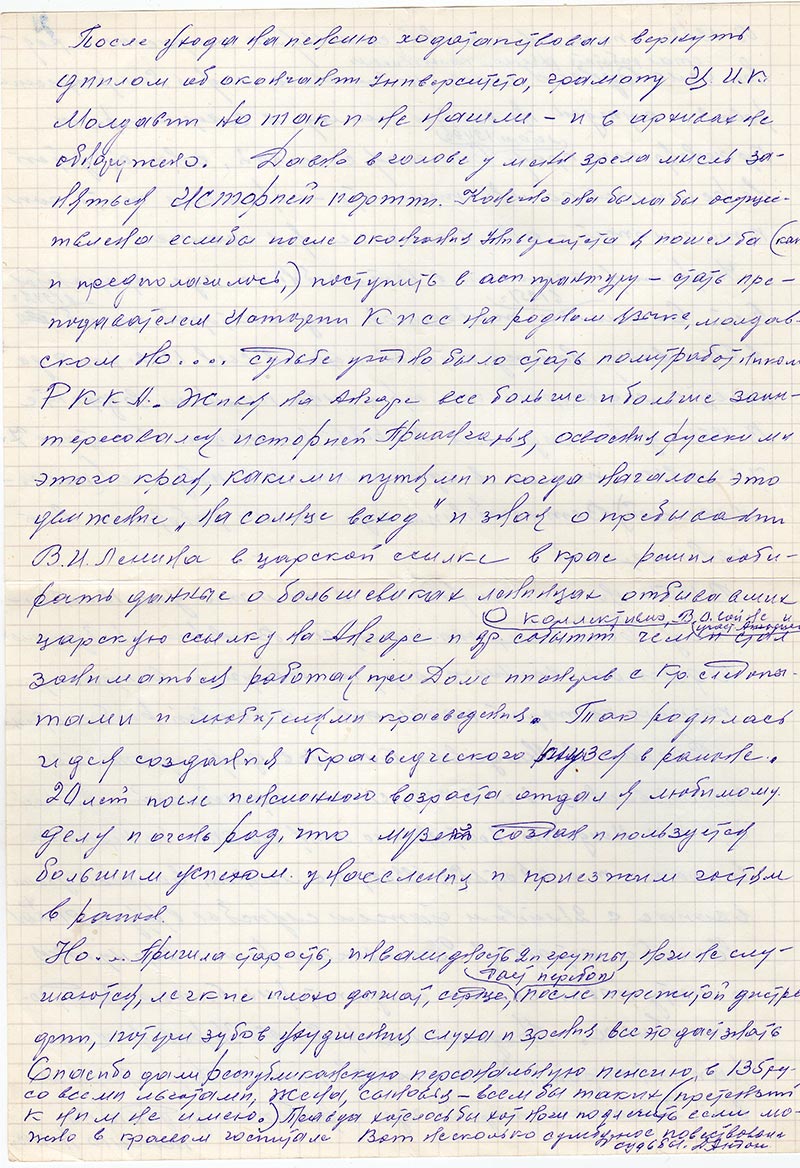 После ухода на пенсию ходотапствовал вернуть
диплом об окончании Университета, грамоту Ц.И.К.
Молдавии но так и не нашли – и в архивах не
обнаружено. Давно в голове у меня зрела мысль за-
няться Историей партии. Конечно она была бы осуще-
твлена если бы после окончания Университета я пошел бы (как
и предпологалось,) поступить в аспирантуру – стать пре-
подавателем Истории КПСС на родном языке, молдав-
ском но.... судьбе угодно было стать политработником
РККА. Живя на Ангаре все больше и больше заин-
тересовался историей Приангарья, освоения русскими
этого края, какими путями и когда началось это
движение „на солнце всход" и зная о пребывании
В.И. Ленина в царской ссылке в крае решил соби-
рать данные о большевиках ленинцах отбывавших
О коллективиз, В.О. войне и
царскую ссылку на Ангаре и др событий чем и стал
заниматься работая при Доме пионеров с Кр. следопы-
тами и любителями краеведения. Так родилась
идея создания Краеведческого музея в районе.
20 лет после пенсионного возраста отдал я любимому
делу и очень рад, что музей создан и пользуется
большим успехом у населения и приезжим гостям
в район.
Но... Пришла старость, инвалидность 2й группы, ноги не слу-
дает перебои
шаются, легкие плохо дышат, сердце, после пережитой дистро-
фии, потери зубов ухудшения слуха и зрения все это даст знать
Спасибо дали республиканскую персональную пенсию в 135 ру
со всеми льготами, жена, сыновья – всем бы таких (претензий
к ним не имею.) Правда хотелось бы хот ноги подлечить если мо-
жно в краевом госпитале Вот несколько сумбурное повествование
судьбы.